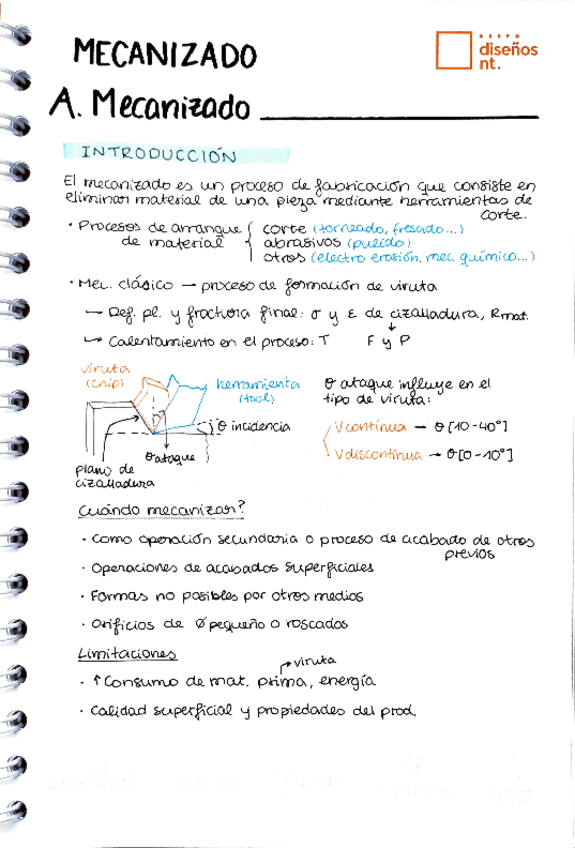 MECANIZADO
GRUPO
diseños
nt.
A. Mecanizado
INTRODUCCIÓN
El mecanizado es un proceso de fabricación que consiste en
eliminar material de una pieza mediante herramientas de
corte.
· Procesos de arranque { corte (torneado, fresado...)
de material abrasivos (pulido)
otros (electro erosión, mec. químico...)
· Mec. clásico → proceso de formación de viruta
→ Def. pl. y fractura final: σ y ε de cizalladura, Rmat.
↓
↳ Calentamiento en el proceso: T F y P
viruta
(chip)
herramienta
(tool)
θ incidencia
θ ataque
plano de
cizalladura
θ ataque influye en el
tipo de viruta:
V continua → θ [10-40°]
V discontinua → θ [0-10°]
Cuándo mecanizar?
· Como operación secundaria o proceso de acabado de otros
previos
· Operaciones de acabados superficiales
· Formas no posibles por otros medios
· Orificios de ∅ pequeño o roscados
Limitaciones
↱ viruta
· ↑ Consumo de mat. prima, energía
· Calidad superficial y propiedades del prod.